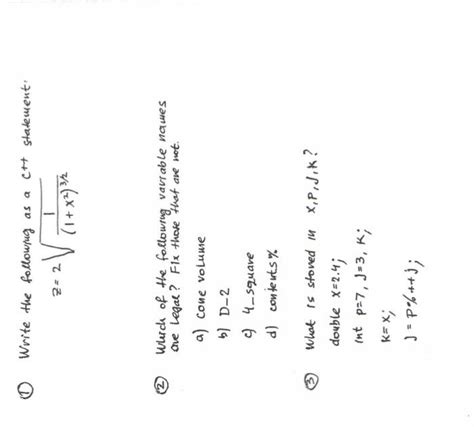 ① Write the following as a C++ statement.
z = 2 √(1 / (1 + x²)^3/2)
② Which of the following variable names
are legal? Fix those that are not.
a) cone volume
b) D_2
c) 4_square
d) contents%
③ What is stored in x, P, J, K?
double x=2.4;
int p=7, J=3, K;
K=x;
J = P%++J;